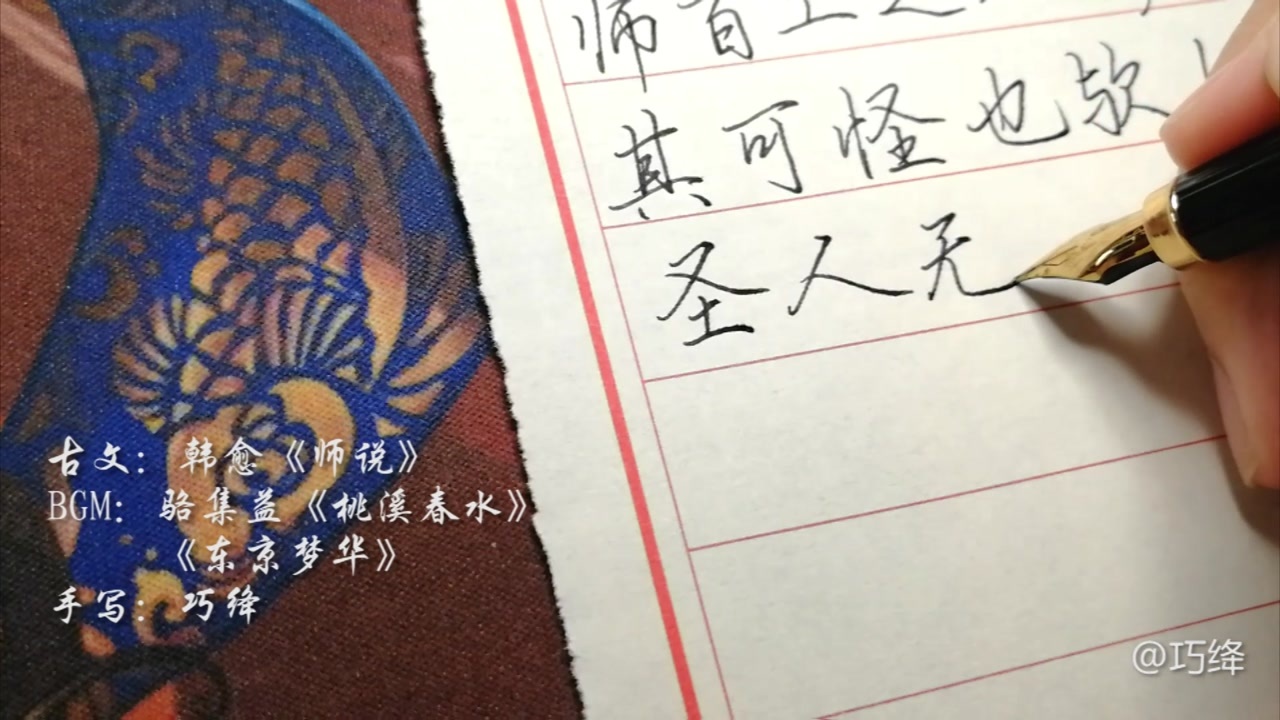 师
其可怪也欤
圣人无
古文：韩愈《师说》
BGM：骆集益《桃溪春水》
《东京梦华》
手写：巧绛
@巧绛